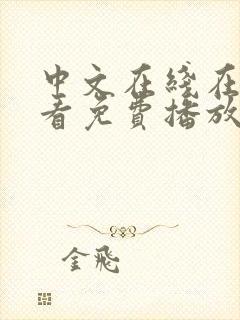 中文在綫在
看免費播放
金飛